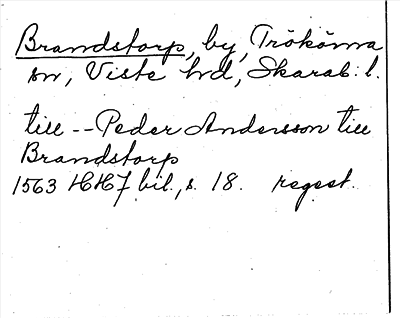 Brandstorp, by, Trökörna
sn, Viste hd, Skarab. l.
till -- Peder Andersson till
Brandstorp
1563 HH7 bil., s. 18. regest.